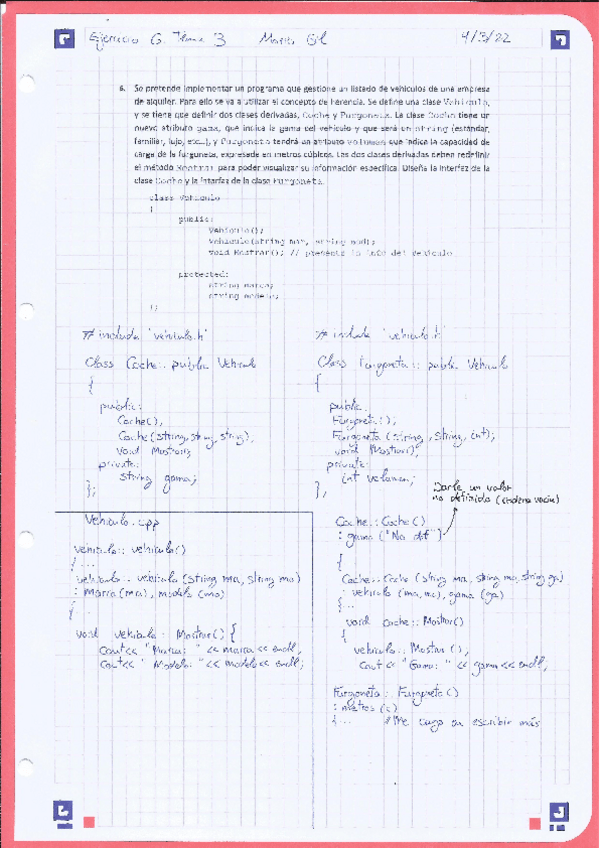 Ejercicio 6. Tema 3 Mario Gil 4/3/22
6. Se pretende implementar un programa que gestione un listado de vehículos de una empresa
de alquiler. Para ello se va a utilizar el concepto de herencia. Se define una clase Vehiculo,
y se tiene que definir dos clases derivadas, Coche y Furgoneta. La clase Coche tiene un
nuevo atributo gama, que indica la gama del vehículo y que será un string (estándar,
familiar, lujo, etc.), y Furgoneta tendrá un atributo volumen que indica la capacidad de
carga de la furgoneta, expresada en metros cúbicos. Las dos clases derivadas deben redefinir
el método Mostrar para poder visualizar su información específica. Diseña la interfaz de la
clase Coche y la interfaz de la clase Furgoneta.
class Vehiculo
{
public:
Vehiculo();
Vehiculo(string mar, string mod);
void Mostrar(); // presenta la info del vehículo
protected:
string marca;
string modelo;
};
# include "vehiculo.h"
Class Coche: public Vehiculo
{
public:
Coche();
Coche(string, string, string);
void Mostrar();
private:
string gama;
};
# include "vehiculo.h"
Class Furgoneta: public Vehiculo
{
public:
Furgoneta();
Furgoneta (string, string, int);
void Mostrar();
private:
int volumen;
};
Darle un valor
no definido (cadena vacía)
Vehiculo.cpp
vehiculo:: vehiculo()
{ ...
vehiculo:: vehiculo (string ma, string mo)
: marca (ma), modelo (mo)
{
void vehiculo:: Mostrar() {
cout << "Marca: " << marca << endl;
cout << "Modelo: " << modelo << endl;
Coche:: Coche()
: gama ("No def")
{
Coche:: Coche (string ma, string mo, string ga)
: vehiculo (ma, mo), gama (ga)
{ ...
void Coche:: Mostrar()
{
vehiculo:: Mostrar();
cout << "Gama: " << gama << endl;
Furgoneta:: Furgoneta()
: metros (0)
{ ... // Me cago en escribir más